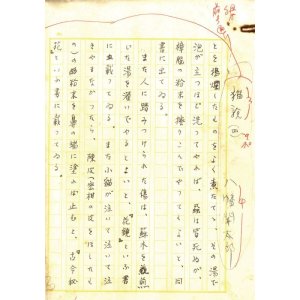 猫雑 四
八幡
とを揚爛したものをよく煮たてゝ、その湯で
泡が立つほど洗つてやれば、蟲は皆死ぬが、
樟腦の粉末を擦りこんでやつてもよいと同
書に出てゐる。
また人に踏みつけられた傷は、蘇木を煎
じた湯を灌いでやるとよいと、「花鏡」といふ書
に出載つてゐる。また小猫が泣いて泣いて泣
きやまなかつたら、陳皮(蜜柑の皮をほしたも
の)の細粉末を鼻の端に塗れば止むと、「古今秘
苑」といふ書に載つてゐる。